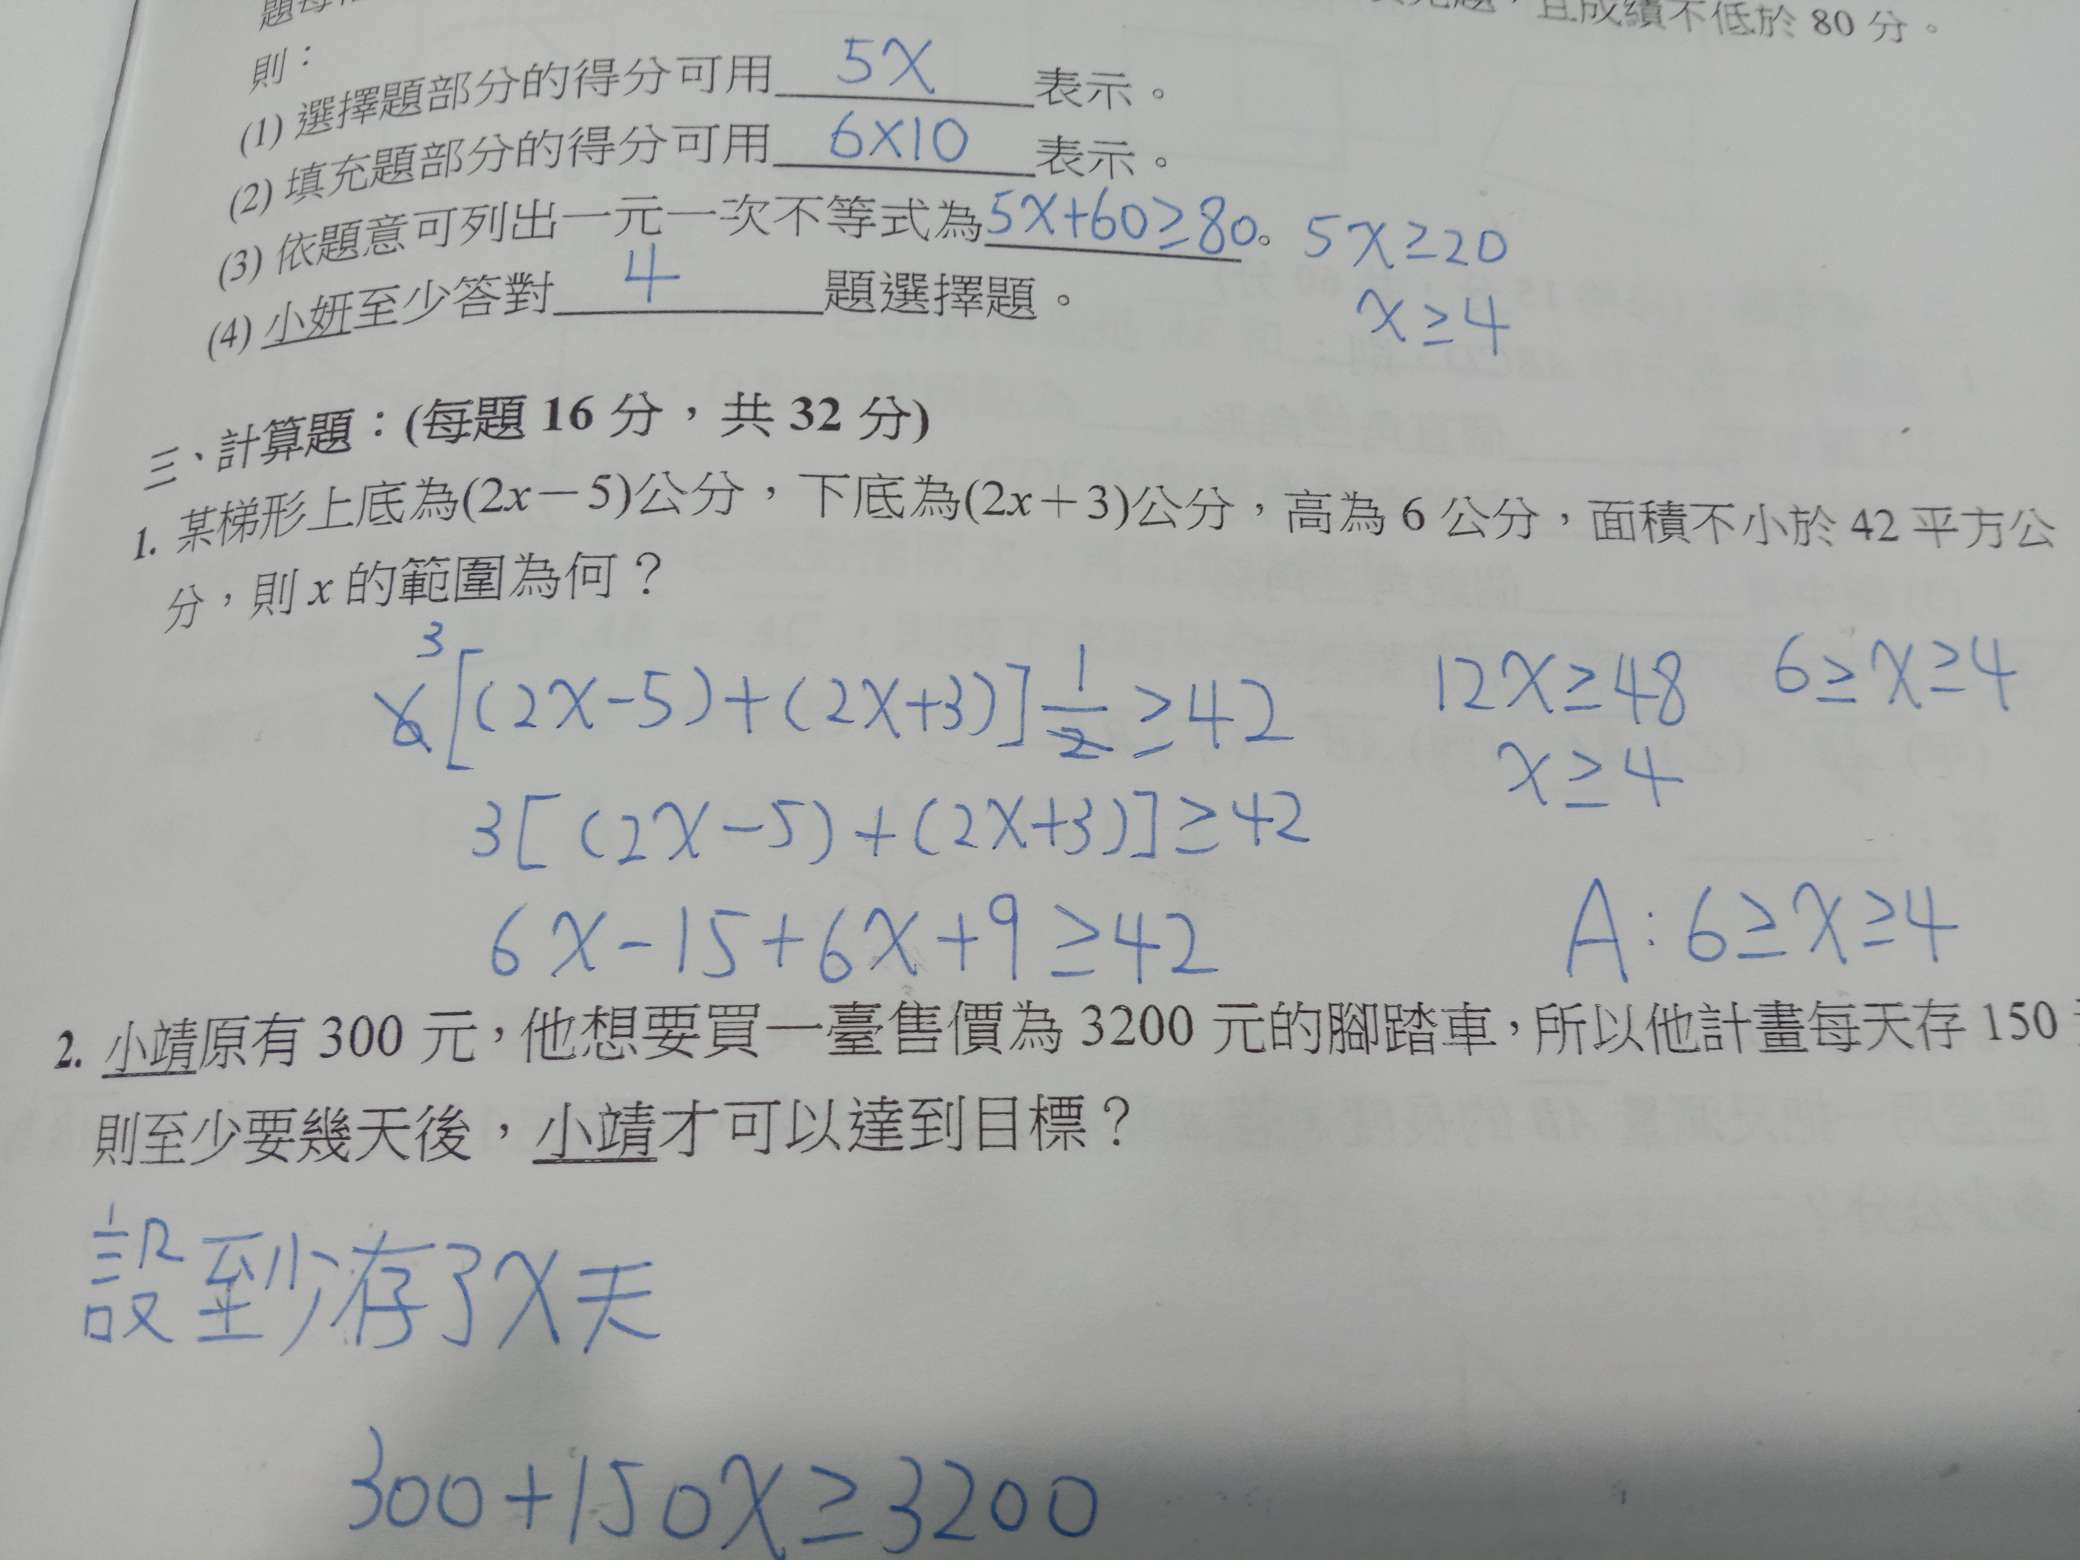 且成績不低於 80 分。
則：
(1) 選擇題部分的得分可用 5x 表示。
(2) 填充題部分的得分可用 6×10 表示。
(3) 依題意可列出一元一次不等式為 5x+60≥80。 5x≥20
(4) 小妍至少答對 4 題選擇題。 x≥4
三、計算題：(每題 16 分，共 32 分)
1. 某梯形上底為(2x－5)公分，下底為(2x＋3)公分，高為 6 公分，面積不小於 42 平方公
分，則 x 的範圍為何？
3
6[(2x-5)+(2x+3)]1/2≥42 12x≥48 6≥x≥4
x≥4
3[(2x-5)+(2x+3)]≥42
6x-15+6x+9≥42 A:6≥x≥4
2. 小靖原有 300 元，他想要買一臺售價為 3200 元的腳踏車，所以他計畫每天存 150
則至少要幾天後，小靖才可以達到目標？
設至少存了x天
300+150x≥3200